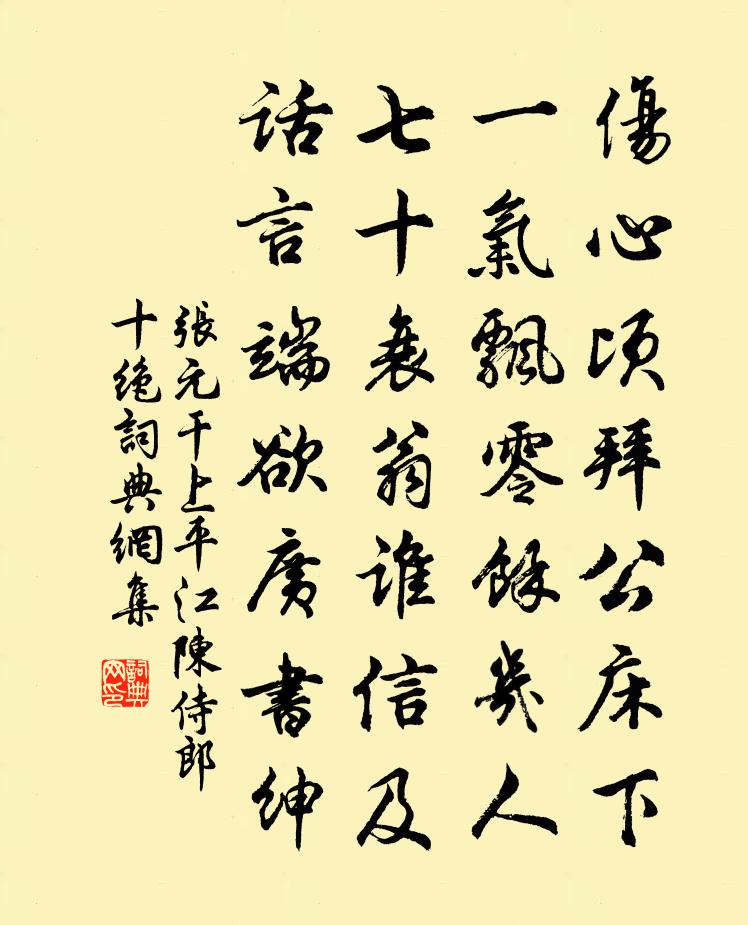 傷心頃拜公床下
一氣飄零餘幾人
七十衰翁誰信及
话言端欲廣書紳
張元干上平江陳侍郎
十绝詞典網集
詞典网印